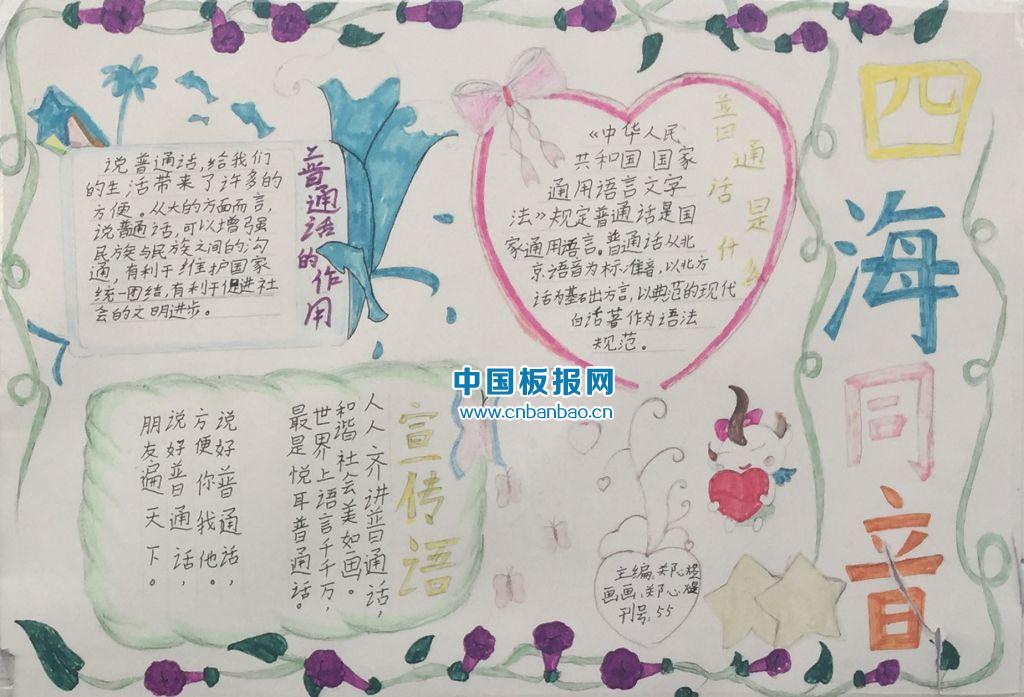 四海同音
普通话的作用
说普通话,给我们
的生活带来了许多的
方便。从大的方面而言,
说普通话,可以增强
民族与民族之间的沟
通,有利于维护国家
统一团结,有利于促进社
会的文明进步。
普通话是什么
《中华人民
共和国国家
通用语言文字
法》规定普通话是国
家通用语言。普通话从北
京语音为标准音,以北方
话为基础出方言,以典范的现代
白话著作为语法
规范。
中国板报网
www.cnbanbao.cn
宣传语
人人齐讲普通话,
和谐社会美如画。
世界上语言千千万,
最是悦耳普通话。
说好普通话,
方便你我他。
说好普通话,
朋友遍天下。
主编:郑心
画画:郑心
刊号:55